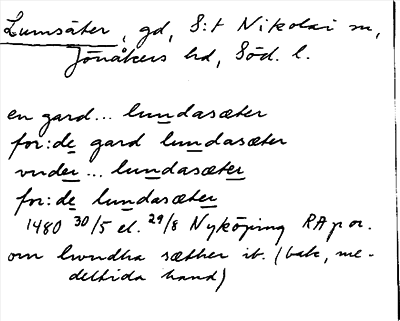 Lumsäter, gd, S:t Nikolai sn,
Jönåkers hd, Söd. l.
en gard... lundasæter
for:de gard lundasæter
vnder... lundasæter
for:de lundasæter
1480 30/5 el. 29/8 Nyköping RA p or.
om lwndha sæther ib. (bak, me-
deltida hand)